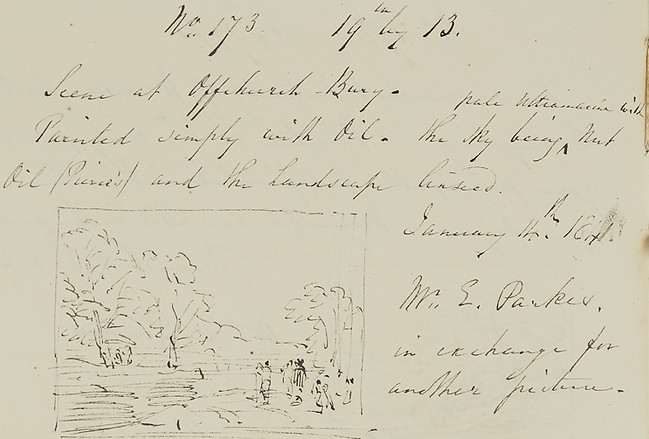 No. 173. 19 in by 13.
Scene at Offchurch-Bury.
pale ultramarine with
Painted simply with Oil. the sky being Nut
Oil (Pierce's) and the Landscape linseed.
January 14th
Mr. E. Parker.
in exchange for
another picture.